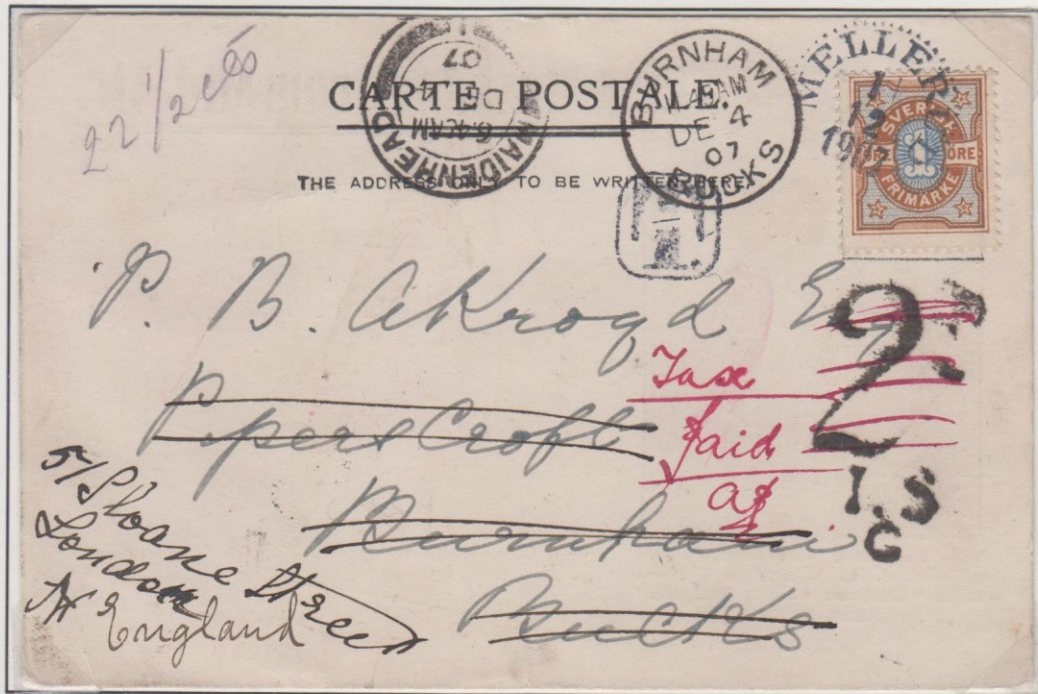 22 1/2 cts
CARTE POSTALE.
THE ADDRESS ONLY TO BE WRITTEN HERE.
MAIDENHEAD
DE 4
07
BURNHAM
AM
DE 4
07
BUCKS
MELLERUD
1
12
1907
SVERIGE
1
ÖRE
FRIMÄRKE
T.
P. B. Akroyd Esq
Pipers Croft
Burnham
Bucks
2D
I.S
G
Tax
paid
51 Sloane Street
London
England